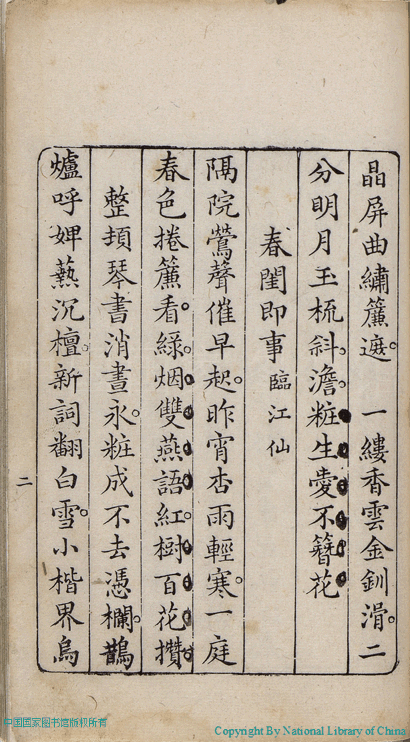 晶屏曲繡簾遮。一縷香雲金釧滑。二
分明月玉梳斜。澹粧生愛不簪花
春閨即事臨江仙
隔院鶯聲催早起。昨宵杏雨輕寒。一庭
春色捲簾看。綠烟雙燕語。紅樹百花攢。
整頓琴書消晝永。粧成不去憑欄。鵲
爐呼婢爇沉檀。新詞翻白雪。小楷界烏
二
中国国家图书馆版权所有
Copyright By National Library of China